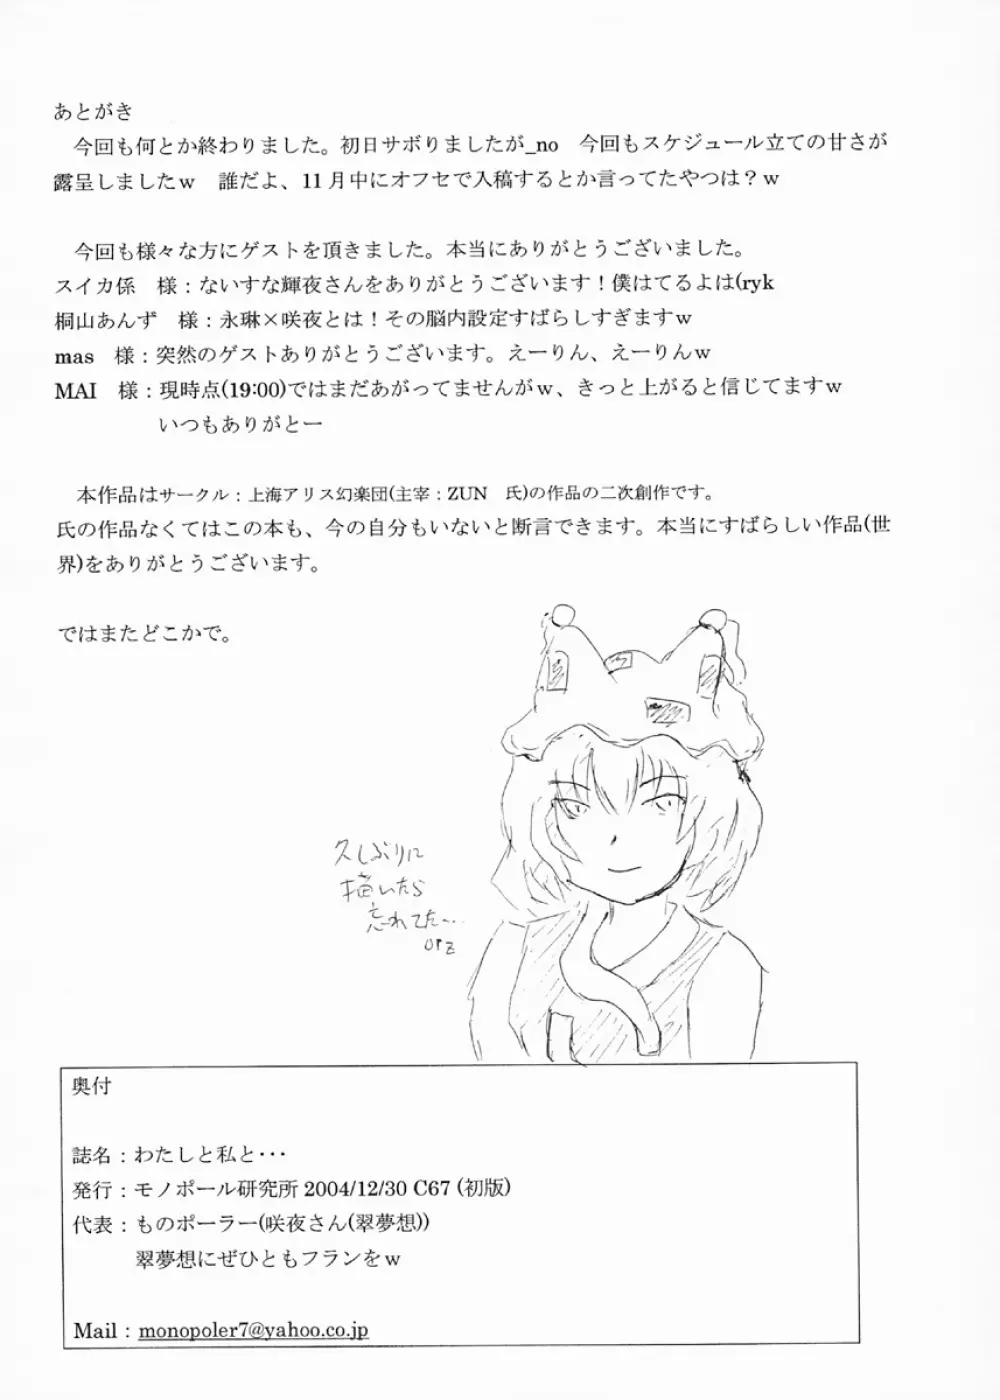 あとがき
今回も何とか終わりました。初日サボりましたが_no　今回もスケジュール立ての甘さが
露呈しましたｗ　誰だよ、11月中にオフセで入稿するとか言ってたやつは？ｗ
今回も様々な方にゲストを頂きました。本当にありがとうございました。
スイカ係　様：ないすな輝夜さんをありがとうございます！僕はてるよは(ryk
桐山あんず　様：永琳×咲夜とは！その脳内設定すばらしすぎますｗ
mas　様：突然のゲストありがとうございます。えーりん、えーりんｗ
MAI　様：現時点(19:00)ではまだあがってませんがｗ、きっと上がると信じてますｗ
いつもありがとー
本作品はサークル：上海アリス幻楽団(主宰：ZUN　氏)の作品の二次創作です。
氏の作品なくてはこの本も、今の自分もいないと断言できます。本当にすばらしい作品(世
界)をありがとうございます。
ではまたどこかで。
久しぶりに
描いたら
忘れてた…
orz
奥付
誌名：わたしと私と･･･
発行：モノポール研究所 2004/12/30 C67 (初版)
代表：ものポーラー(咲夜さん(翠夢想))
翠夢想にぜひともフランをｗ
Mail：monopoler7@yahoo.co.jp